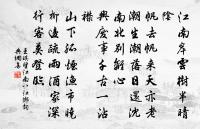 江南岸雲樹半晴
陰
帆去帆來天亦老
潮生潮落日還沈
南北別離心
興廢事千古一沾
襟
山下孤煙漁市遠
柳邊疏雨酒家深
行客莫登臨